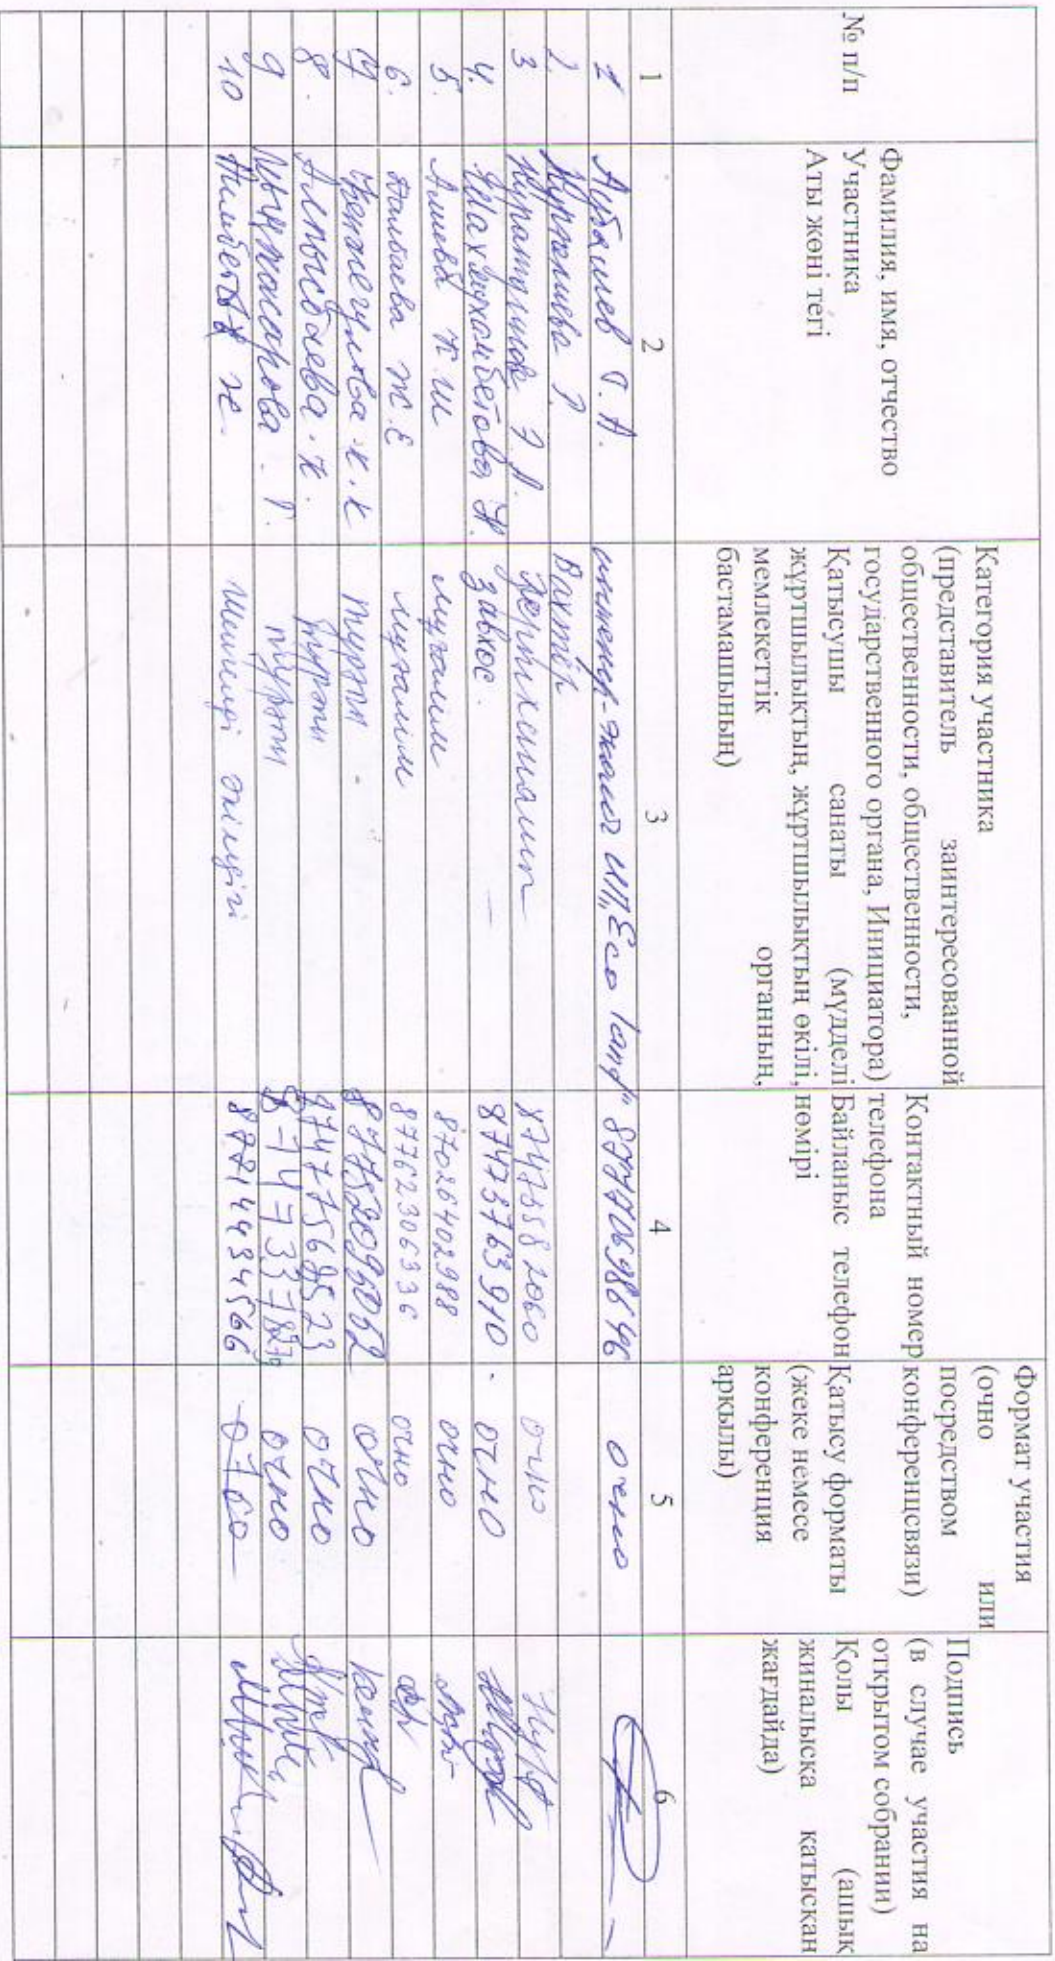 № п/п
Фамилия, имя, отчество
Участника
Аты жөні тегі
Категория участника
(представитель заинтересованной
общественности, общественности,
государственного органа, Инициатора)
Қатысушы санаты (мүдделі
жұртшылықтың, жұртшылықтың өкілі,
мемлекеттік органның,
бастамашының)
Контактный номер
телефона
Байланыс телефон
нөмірі
Формат участия
(очно или
посредством
конференцсвязи)
Қатысу форматы
(жеке немесе
конференция
арқылы)
Подпись
(в случае участия на
открытом собрании)
Қолы (ашық
жиналысқа қатысқан
жағдайда)
1 2 3 4 5 6
1 Г.А. инженер-эколог ИП „Eco 87770698646 очно
2. Нурғалиева Г. Вахтёр
3 Э.А. 87475582060 очно
4. Шахмуханбетова Н. завхоз. 87473763910. очно
5. Алиева К Ш мұғалім 87026402988 очно
6. Ж.Е мұғалім 87762306336 очно
7 К.К тұрғын. 87782095062 очно
8. Алпысбаева. К. тұрғын 87477569523 очно
9 Г. тұрғын очно
10 Ж. өкілдігі 87714434566